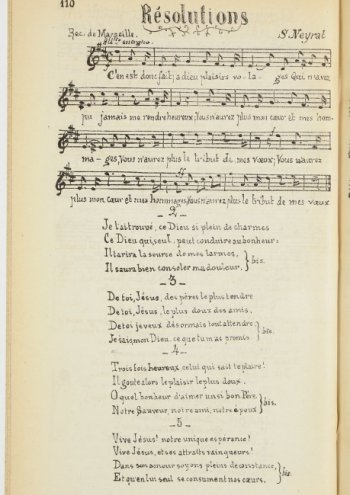 110
Résolutions
Rec. de Marseille. S. Neyrat
C'en est donc fait; adieu plaisirs vo-la-ges Qui n'avez
pu jamais me rendre heureux, Vous n'aurez plus mon cœur et mes hom-
ma-ges, Vous n'aurez plus le tribut de mes vœux; Vous n'aurez
plus mon cœur et mes hommages, Vous n'aurez plus le tribut de mes vœux
-2-
Je l'ai trouvé, ce Dieu si plein de charmes
Ce Dieu qui seul, peut conduire au bonheur:
Il tarira la source de mes larmes,
Il saura bien consoler ma douleur. } bis.
-3-
De toi, Jésus, des pères le plus tendre
De toi, Jésus, le plus doux des amis,
De toi je veux désormais tout attendre;
Je sais, mon Dieu, ce que tu m'as promis } bis.
-4-
Trois fois heureux celui qui sait te plaire!
Il goûte alors le plaisir le plus doux.
O quel bonheur d'aimer un si bon Père
Notre Sauveur, notre ami, notre époux } bis.
-5-
Vive Jésus! notre unique espérance!
Vive Jésus, et ses attraits vainqueurs!
Dans son amour soyons pleins de constance,
Et qu'en lui seul se consument nos cœurs. } bis.